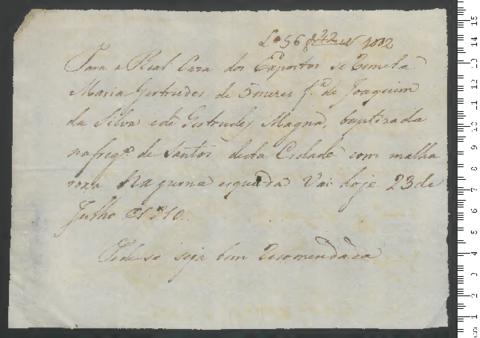 Lº 56 1002
Para a Real Caza dos Expostos se remete
Maria Gertrudes de 3 mezes fª de Joaquim
da Silva e de Gertrudes Magna, bautizada
na fregª de Santos desta Cidade com malha
roxa na esquerda Vai hoje 23 de
Julho 1810.
Pede-se seja bem recomendada